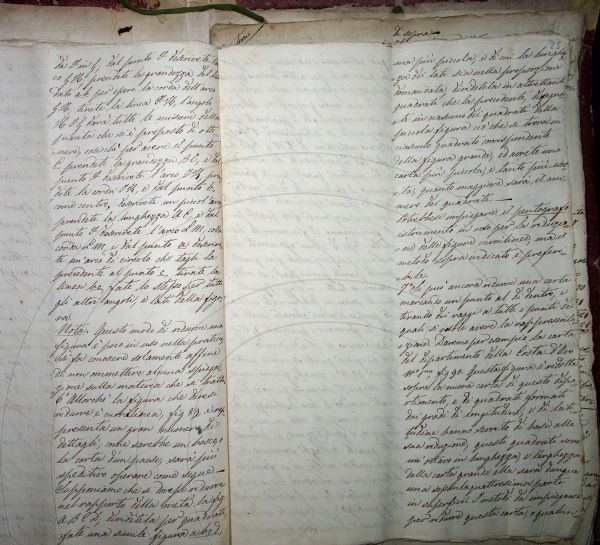 da F in G, dal punto F descrivete l'ar-
co G H prendete la grandezza del lato
dato e per
G H tirate la linea F H, l'angolo
H F G darà tutte le misure della
quanta che si è proposto di otte-
nere, cosicchè per avere il punto
C prendete la grandezza B C, e dal
punto F descrivete l'arco I K, pren-
dete la corda I K, e dal punto b,
come centro, descrivete un picciol arco
prendete la lunghezza A C, e dal
punto F descrivete l'arco L M, colla
corda L M, e dal punto a descrive-
te un arco di circolo che tagli la
precedente al punto c, tirate la
linea bc, fate lo stesso per tutti
gli altri angoli, e lati della figu-
ra.
Nota. Questo modo di ridurre una
figura è poco in uso nella pratica,
si fa conoscere solamente affine
di non ommettere alcuna spiega-
zione sulla materia che si tratta.
6° Allorchè la figura che devesi
ridurre è curvilinea, fig 89, e rap-
presenta un gran numero di
dettagli, come sarebbe un bosco, o
la carta d'un paese, sarà più
speditivo operare come segue —
Supponiamo che si devessi ridurre
nel rapporto della metà la fig
A B C D, dividetela per quadrati,
fate una simile figura a b c d,
di sopra
25
ma più piccola, e di cui la lunghez-
za dei lati sia nella proporzione
domandata, dividetela in altrettanti
quadrati che la precedente, disegna-
te in ciascuno dei quadrati della
piccola figura ciò che si trova in
ciascuno quadrato corrispondente
della figura grande, ed avrete una
carta più piccola, e tanto più esat-
ta, quanto maggiore sarà il nu-
mero dei quadrati —
Potrebbesi impiegare il pentografo
istromento in uso per la riduzio-
ne delle figure curvilinee, ma il
metodo sopra indicato è preferi-
bile.
7° Si può ancora ridurre una carta
marcando un punto al di dentro, e
tirando dei raggi a tutti i punti dei
quali si vuole avere la rappresenta-
zione. Daremo per esempio la carta
del dipartimento della Costa d'Oro
fig 90. Questa figura è ridotta
sopra la nuova carta di questo dipar-
timento, e i quadrati formati
dei gradi di longitudine, e di lati-
tudine hanno servito di base alla
sua riduzione, questi quadrati sono
un ottavo in lunghezza, e larghezza
della carta grande ella sarà dunque
una sessantaquattresima parte
in superficie. I metodi da impiegare
per ridurre questa carta, o qualun-